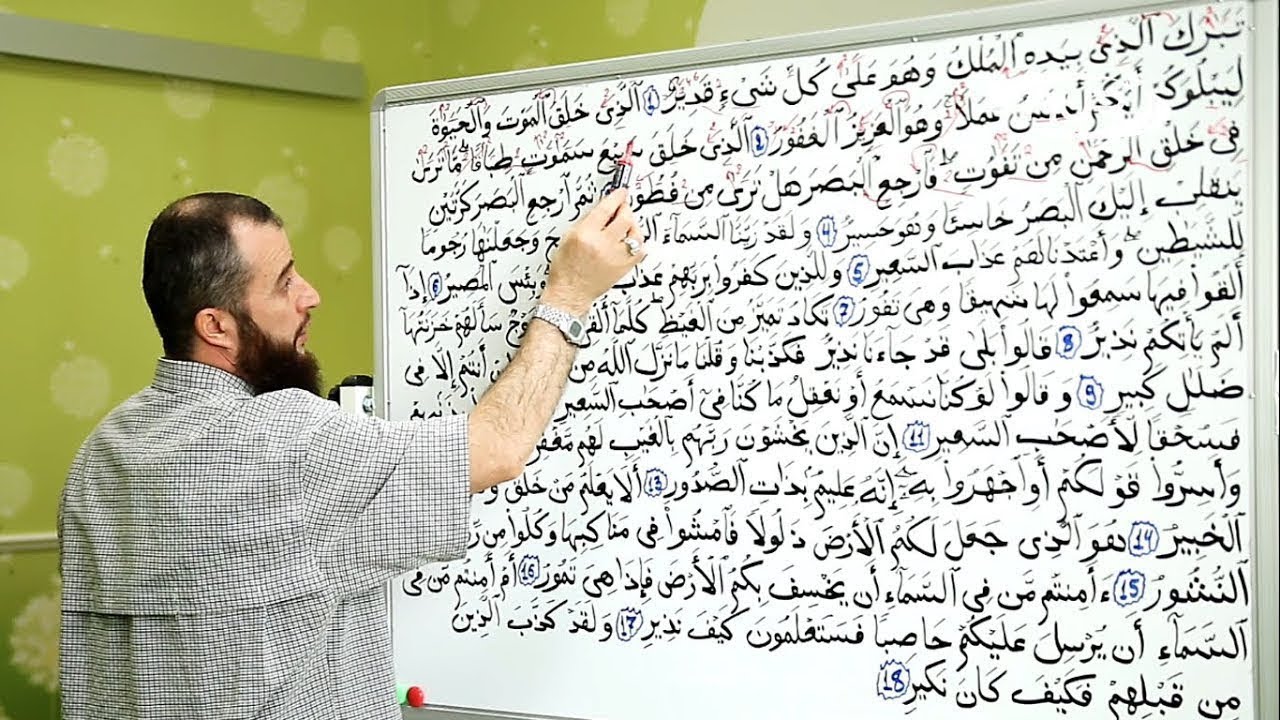 تَبَٰرَكَ ٱلَّذِى بِيَدِهِ ٱلْمُلْكُ وَهُوَ عَلَىٰ كُلِّ شَىْءٍ قَدِيرٌ 1 ٱلَّذِى خَلَقَ ٱلْمَوْتَ وَٱلْحَيَوٰةَ
لِيَبْلُوَكُمْ أَيُّكُمْ أَحْسَنُ عَمَلًا وَهُوَ ٱلْعَزِيزُ ٱلْغَفُورُ 2 ٱلَّذِى خَلَقَ سَبْعَ سَمَٰوَٰتٍ طِبَاقًا مَّا تَرَىٰ
فِى خَلْقِ ٱلرَّحْمَٰنِ مِن تَفَٰوُتٍ فَٱرْجِعِ ٱلْبَصَرَ هَلْ تَرَىٰ مِن فُطُورٍ ثُمَّ ٱرْجِعِ ٱلْبَصَرَ كَرَّتَيْنِ
يَنقَلِبْ إِلَيْكَ ٱلْبَصَرُ خَاسِئًا وَهُوَ حَسِيرٌ 4 وَلَقَدْ زَيَّنَّا ٱلسَّمَآءَ وَجَعَلْنَٰهَا رُجُومًا
لِّلشَّيَٰطِينِ وَأَعْتَدْنَا لَهُمْ عَذَابَ ٱلسَّعِيرِ 5 وَلِلَّذِينَ كَفَرُوا۟ بِرَبِّهِمْ عَذَابُ وَبِئْسَ ٱلْمَصِيرُ 6 إِذَآ
أُلْقُوا۟ فِيهَا سَمِعُوا۟ لَهَا شَهِيقًا وَهِىَ تَفُورُ 7 تَكَادُ تَمَيَّزُ مِنَ ٱلْغَيْظِ كُلَّمَآ سَأَلَهُمْ خَزَنَتُهَآ
أَلَمْ يَأْتِكُمْ نَذِيرٌ 8 قَالُوا۟ بَلَىٰ قَدْ جَآءَنَا نَذِيرٌ فَكَذَّبْنَا وَقُلْنَا مَا نَزَّلَ ٱللَّهُ مِن أَنتُمْ إِلَّا فِى
ضَلَٰلٍ كَبِيرٍ 9 وَقَالُوا۟ لَوْ كُنَّا نَسْمَعُ أَوْ نَعْقِلُ مَا كُنَّا فِىٓ أَصْحَٰبِ ٱلسَّعِيرِ
فَسُحْقًا لِّأَصْحَٰبِ ٱلسَّعِيرِ 11 إِنَّ ٱلَّذِينَ يَخْشَوْنَ رَبَّهُم بِٱلْغَيْبِ لَهُم
وَأَسِرُّوا۟ قَوْلَكُمْ أَوِ ٱجْهَرُوا۟ بِهِۦٓ إِنَّهُۥ عَلِيمٌۢ بِذَاتِ ٱلصُّدُورِ 13 أَلَا يَعْلَمُ مَنْ خَلَقَ
ٱلْخَبِيرُ 14 هُوَ ٱلَّذِى جَعَلَ لَكُمُ ٱلْأَرْضَ ذَلُولًا فَٱمْشُوا۟ فِى مَنَاكِبِهَا وَكُلُوا۟ مِن
ٱلنُّشُورُ 15 ءَأَمِنتُم مَّن فِى ٱلسَّمَآءِ أَن يَخْسِفَ بِكُمُ ٱلْأَرْضَ فَإِذَا هِىَ تَمُورُ 16 أَمْ أَمِنتُم مَّن فِى
ٱلسَّمَآءِ أَن يُرْسِلَ عَلَيْكُمْ حَاصِبًا فَسَتَعْلَمُونَ كَيْفَ نَذِيرِ 17 وَلَقَدْ كَذَّبَ ٱلَّذِينَ
مِن قَبْلِهِمْ فَكَيْفَ كَانَ نَكِيرِ 18